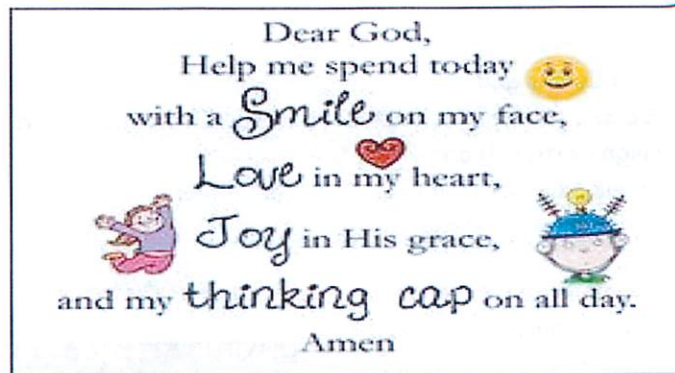 Dear God,
Help me spend today
with a Smile on my face,
Love in my heart,
Joy in His grace,
and my thinking cap on all day.
Amen